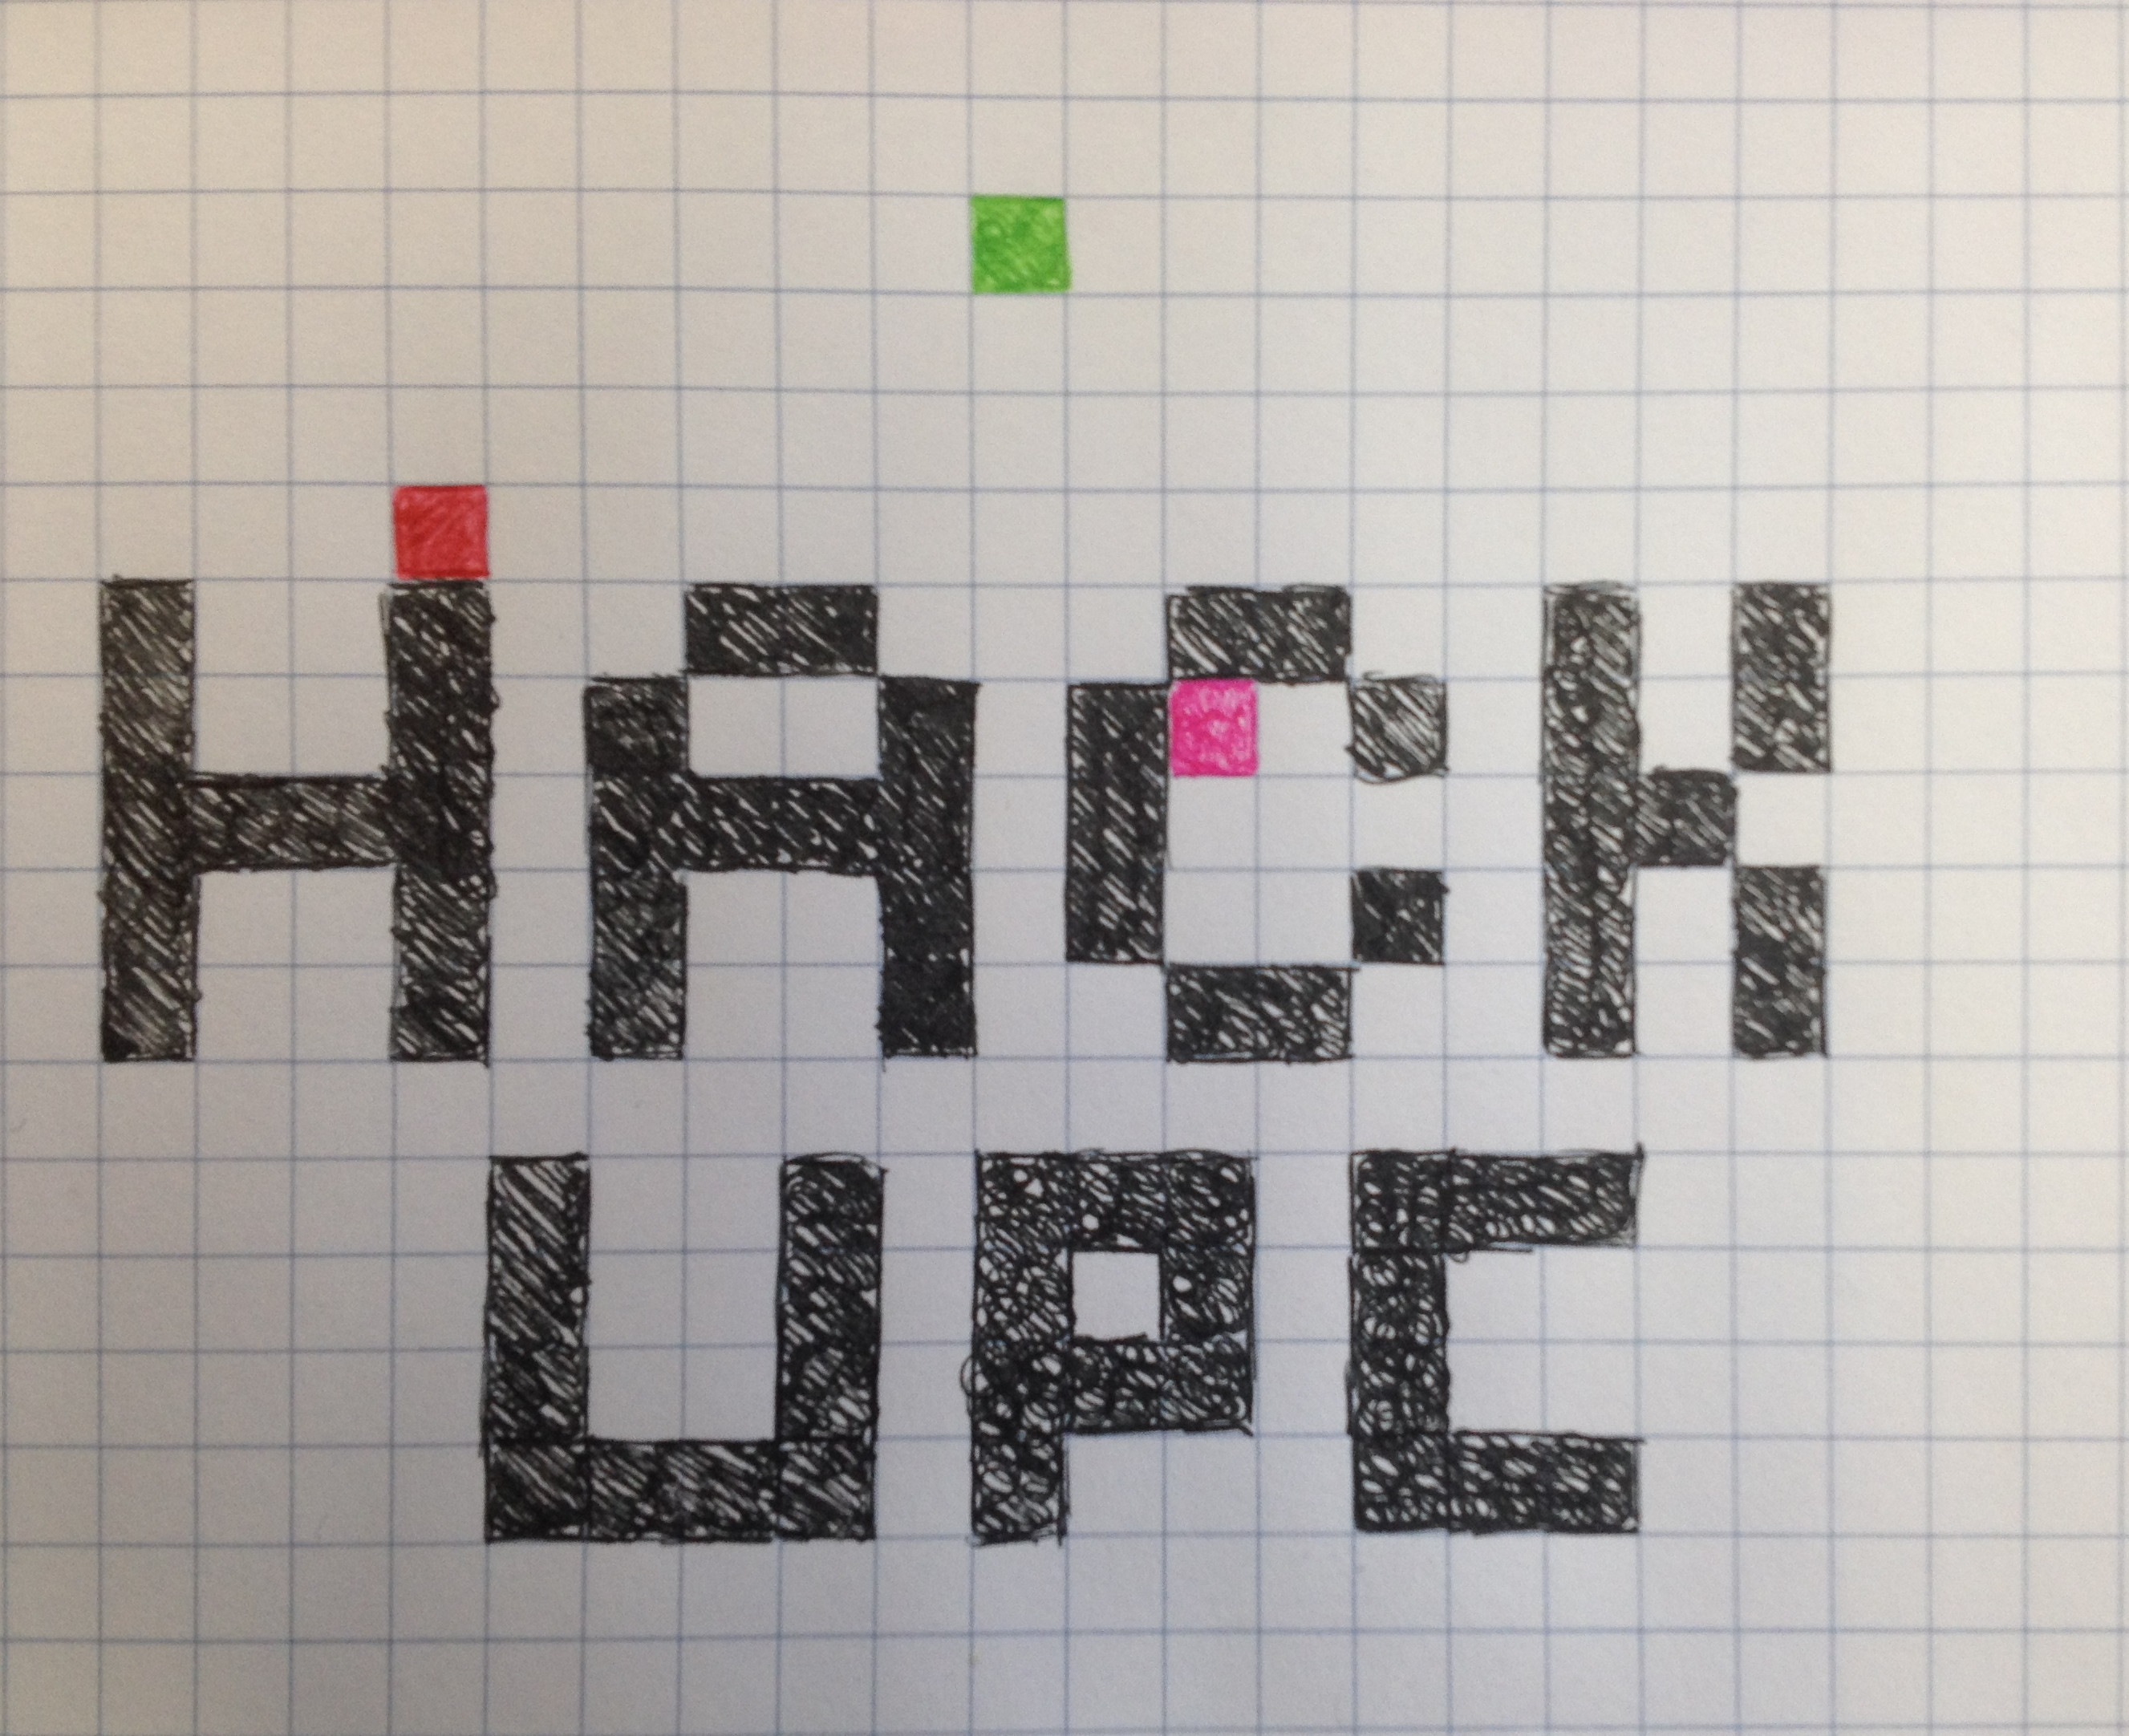 HACK
UPC